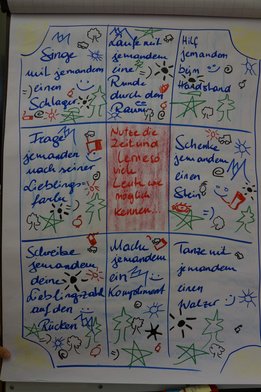 Singe
mit jemandem
einen
Schlager
Laufe mit
jemandem
eine
Runde
durch den
Raum
Hilf
jemandem
beim
Handstand
Frage
jemanden
nach seiner
Lieblings-
farbe
Nutze die
Zeit und
lerne so
viele
Leute wie
möglich
kennen...
Schenke
jemandem
einen
Stein
Schreibe
jemandem
deine
Lieblingszahl
auf den
Rücken
Mache
jemandem
ein
Kompliment
Tanze mit
jemandem
einen
Walzer